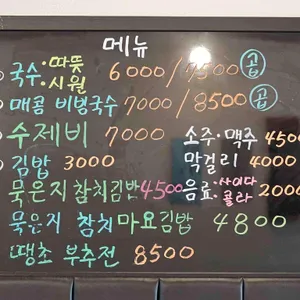 메뉴
국수·따뜻 시원 6000/7500 곱
매콤 비빔국수 7000/8500 곱
수제비 7000 소주·맥주 4500
김밥 3000 막걸리 4000
묵은지참치김밥4500 음료·사이다 콜라 2000
묵은지 참치마요김밥 4800
땡초 부추전 8500